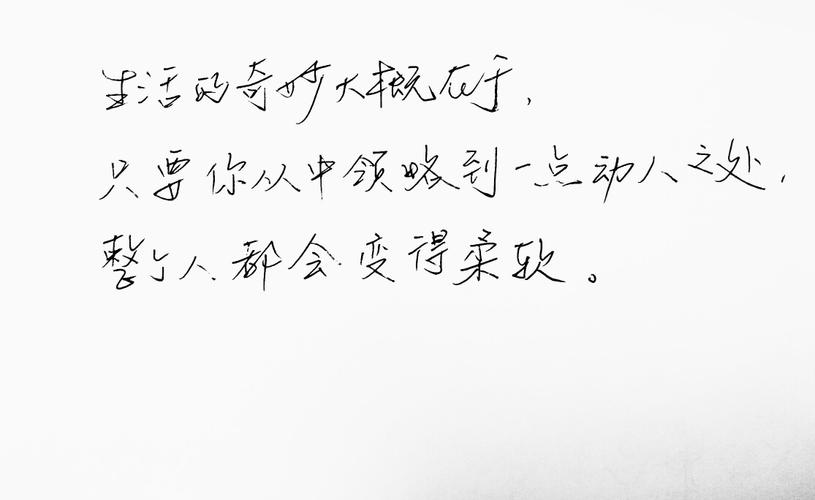 生活的奇妙大概在于，
只要你从中领略到一点动人之处，
整个人都会变得柔软。